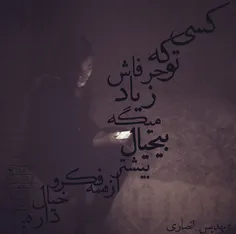 کسی
که
تو حرفاش
زیاد
میگه
بیخیال
بیشتر
از همه فکرو
خیال
داره
انصاری